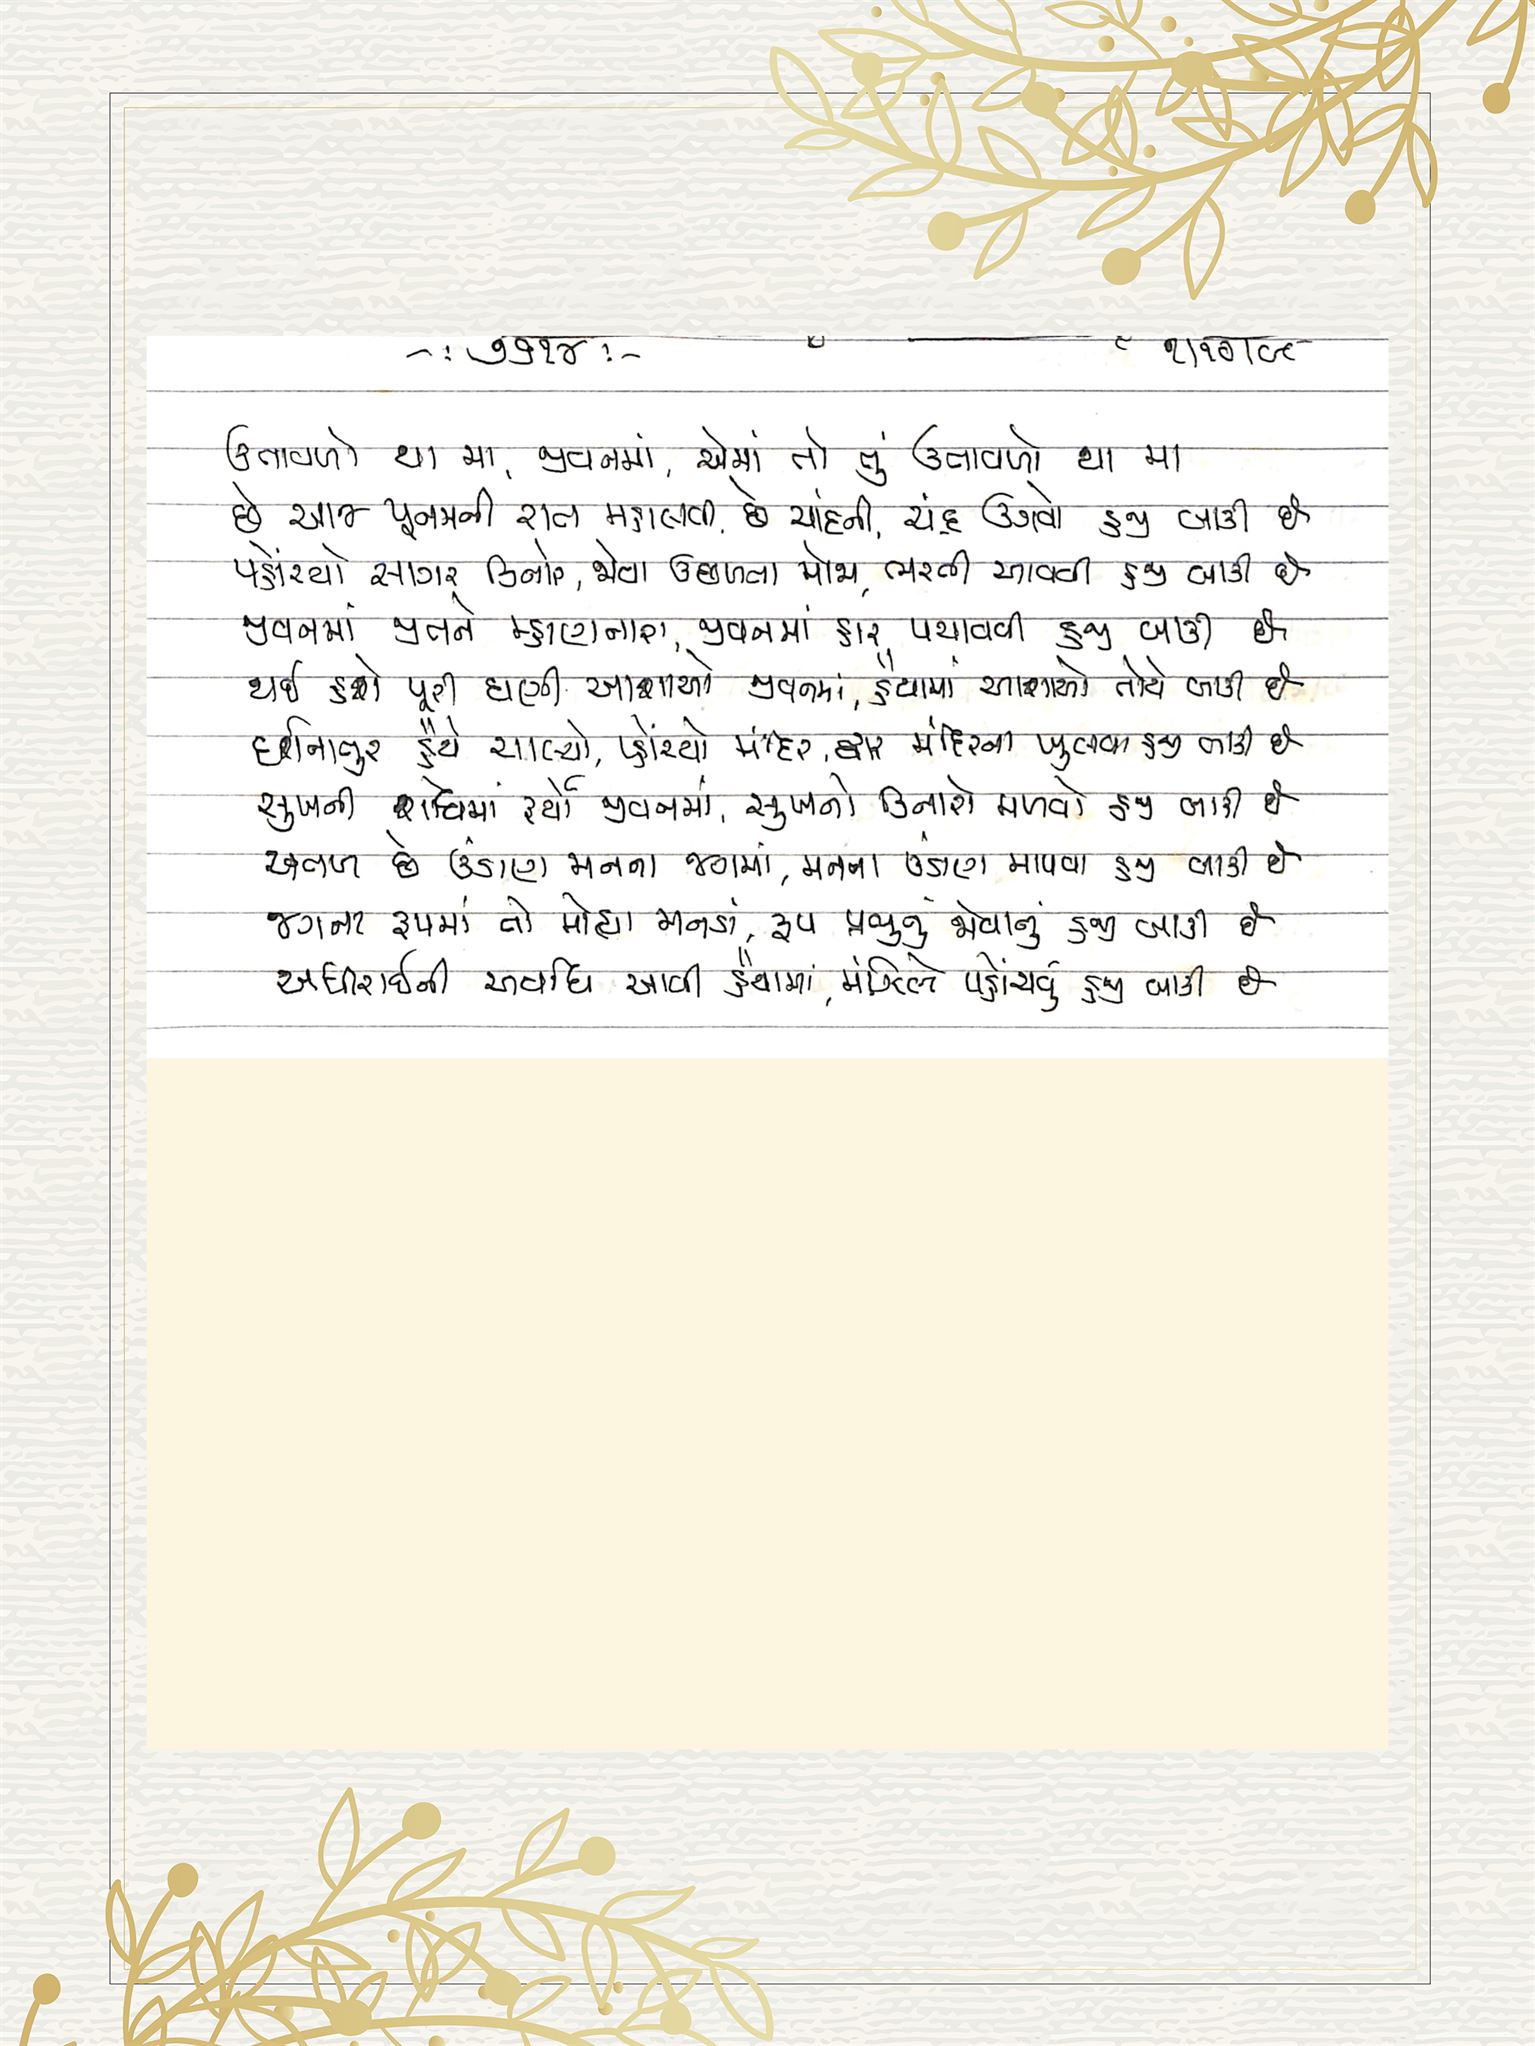 -: ૭૧૨૪ :-
ઉતાવળો થા મા, જીવનમાં, એમાં તો તું ઉતાવળો થા મા
છે આજ પૂનમની રાત મહાલવી છે ચાંદની, ચંદ્ર ઉગવો હજી બાકી છે
પહોંચ્યો સાગર કિનારે, જોવા ઉછળતા મોજા, ભરતી આવવી હજી બાકી છે
જીવનમાં જીતને મ્હાણનારા, જીવનમાં હાર પચાવવી હજી બાકી છે
થઈ હશે પૂરી ઘણી આશાઓ જીવનમાં, હૈયામાં આશાઓ તોયે બાકી છે
દર્શનાતુર હૈયે ચાલ્યો, પહોંચ્યો મંદિર, દ્વાર મંદિરના ખુલવા હજી બાકી છે
સુખની શોધમાં રહ્યો જીવનમાં, સુખનો કિનારો મળવો હજી બાકી છે
અતળ છે ઉંડાણ મનના જગમાં, મનના ઉંડાણ માપવા હજી બાકી છે
જગના રૂપમાં તો મોહ્યા મનડાં, રૂપ પ્રભુનું જોવાનું હજી બાકી છે
અધીરાઈની અવધિ આવી હૈયામાં, મંઝિલે પહોંચવું હજી બાકી છે